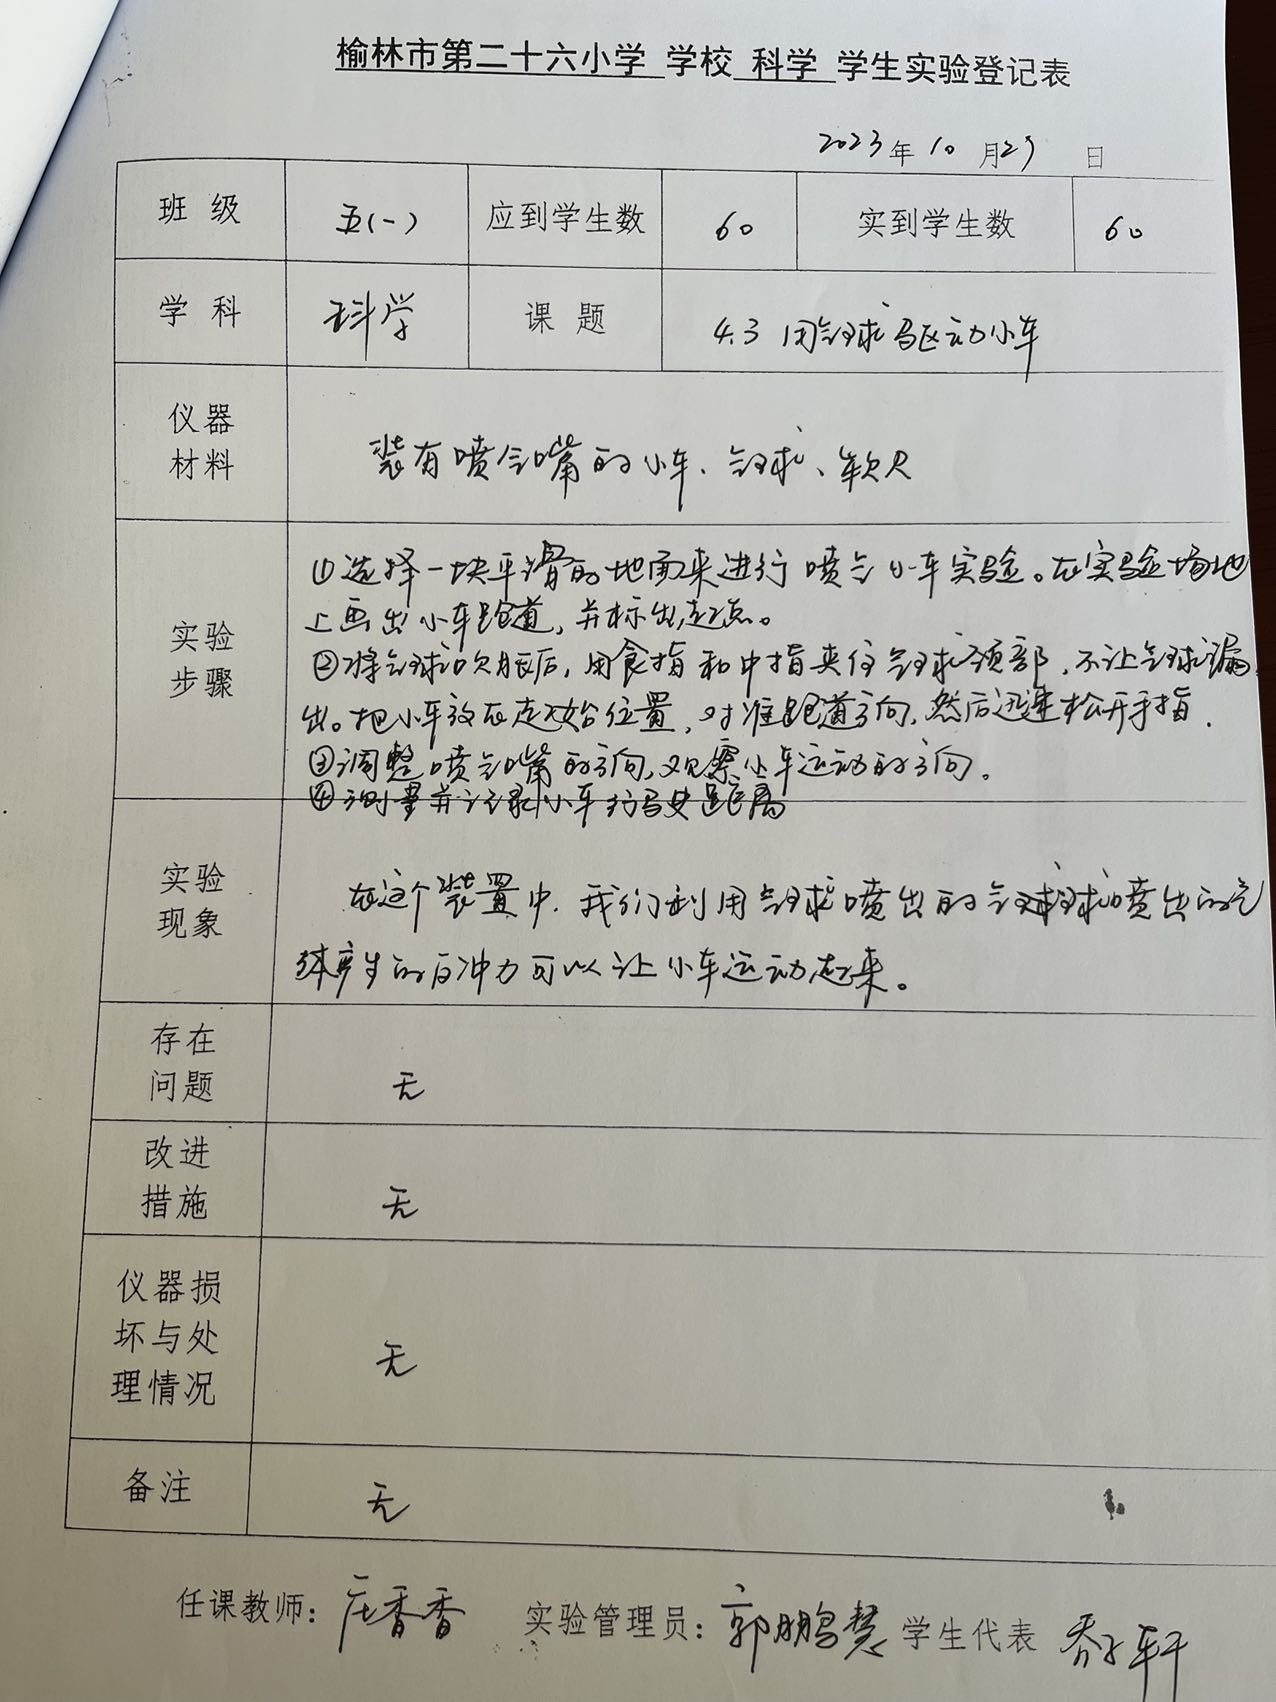 榆林市第二十六小学 学校 科学 学生实验登记表
2023年10月29日
班级 五(一) 应到学生数 60 实到学生数 60
学科 科学 课题 4.3 用气球驱动小车
仪器材料 装有喷气嘴的小车、气球、软尺
实验步骤
①选择一块平滑的地面来进行喷气小车实验。在实验场地
上画出小车跑道,并标出起点。
②将气球吹胀后,用食指和中指夹住气球颈部,不让气球漏
出。把小车放在起始位置,对准跑道方向,然后迅速松开手指.
③调整喷气嘴的方向,观察小车运动的方向。
④测量并记录小车行驶距离
实验现象
在这个装置中,我们利用气球喷出的气球喷出的气
体产生的反冲力可以让小车运动起来。
存在问题 无
改进措施 无
仪器损坏与处理情况 无
备注 无
任课教师:庄香香 实验管理员:郭鹏慧 学生代表 乔子轩